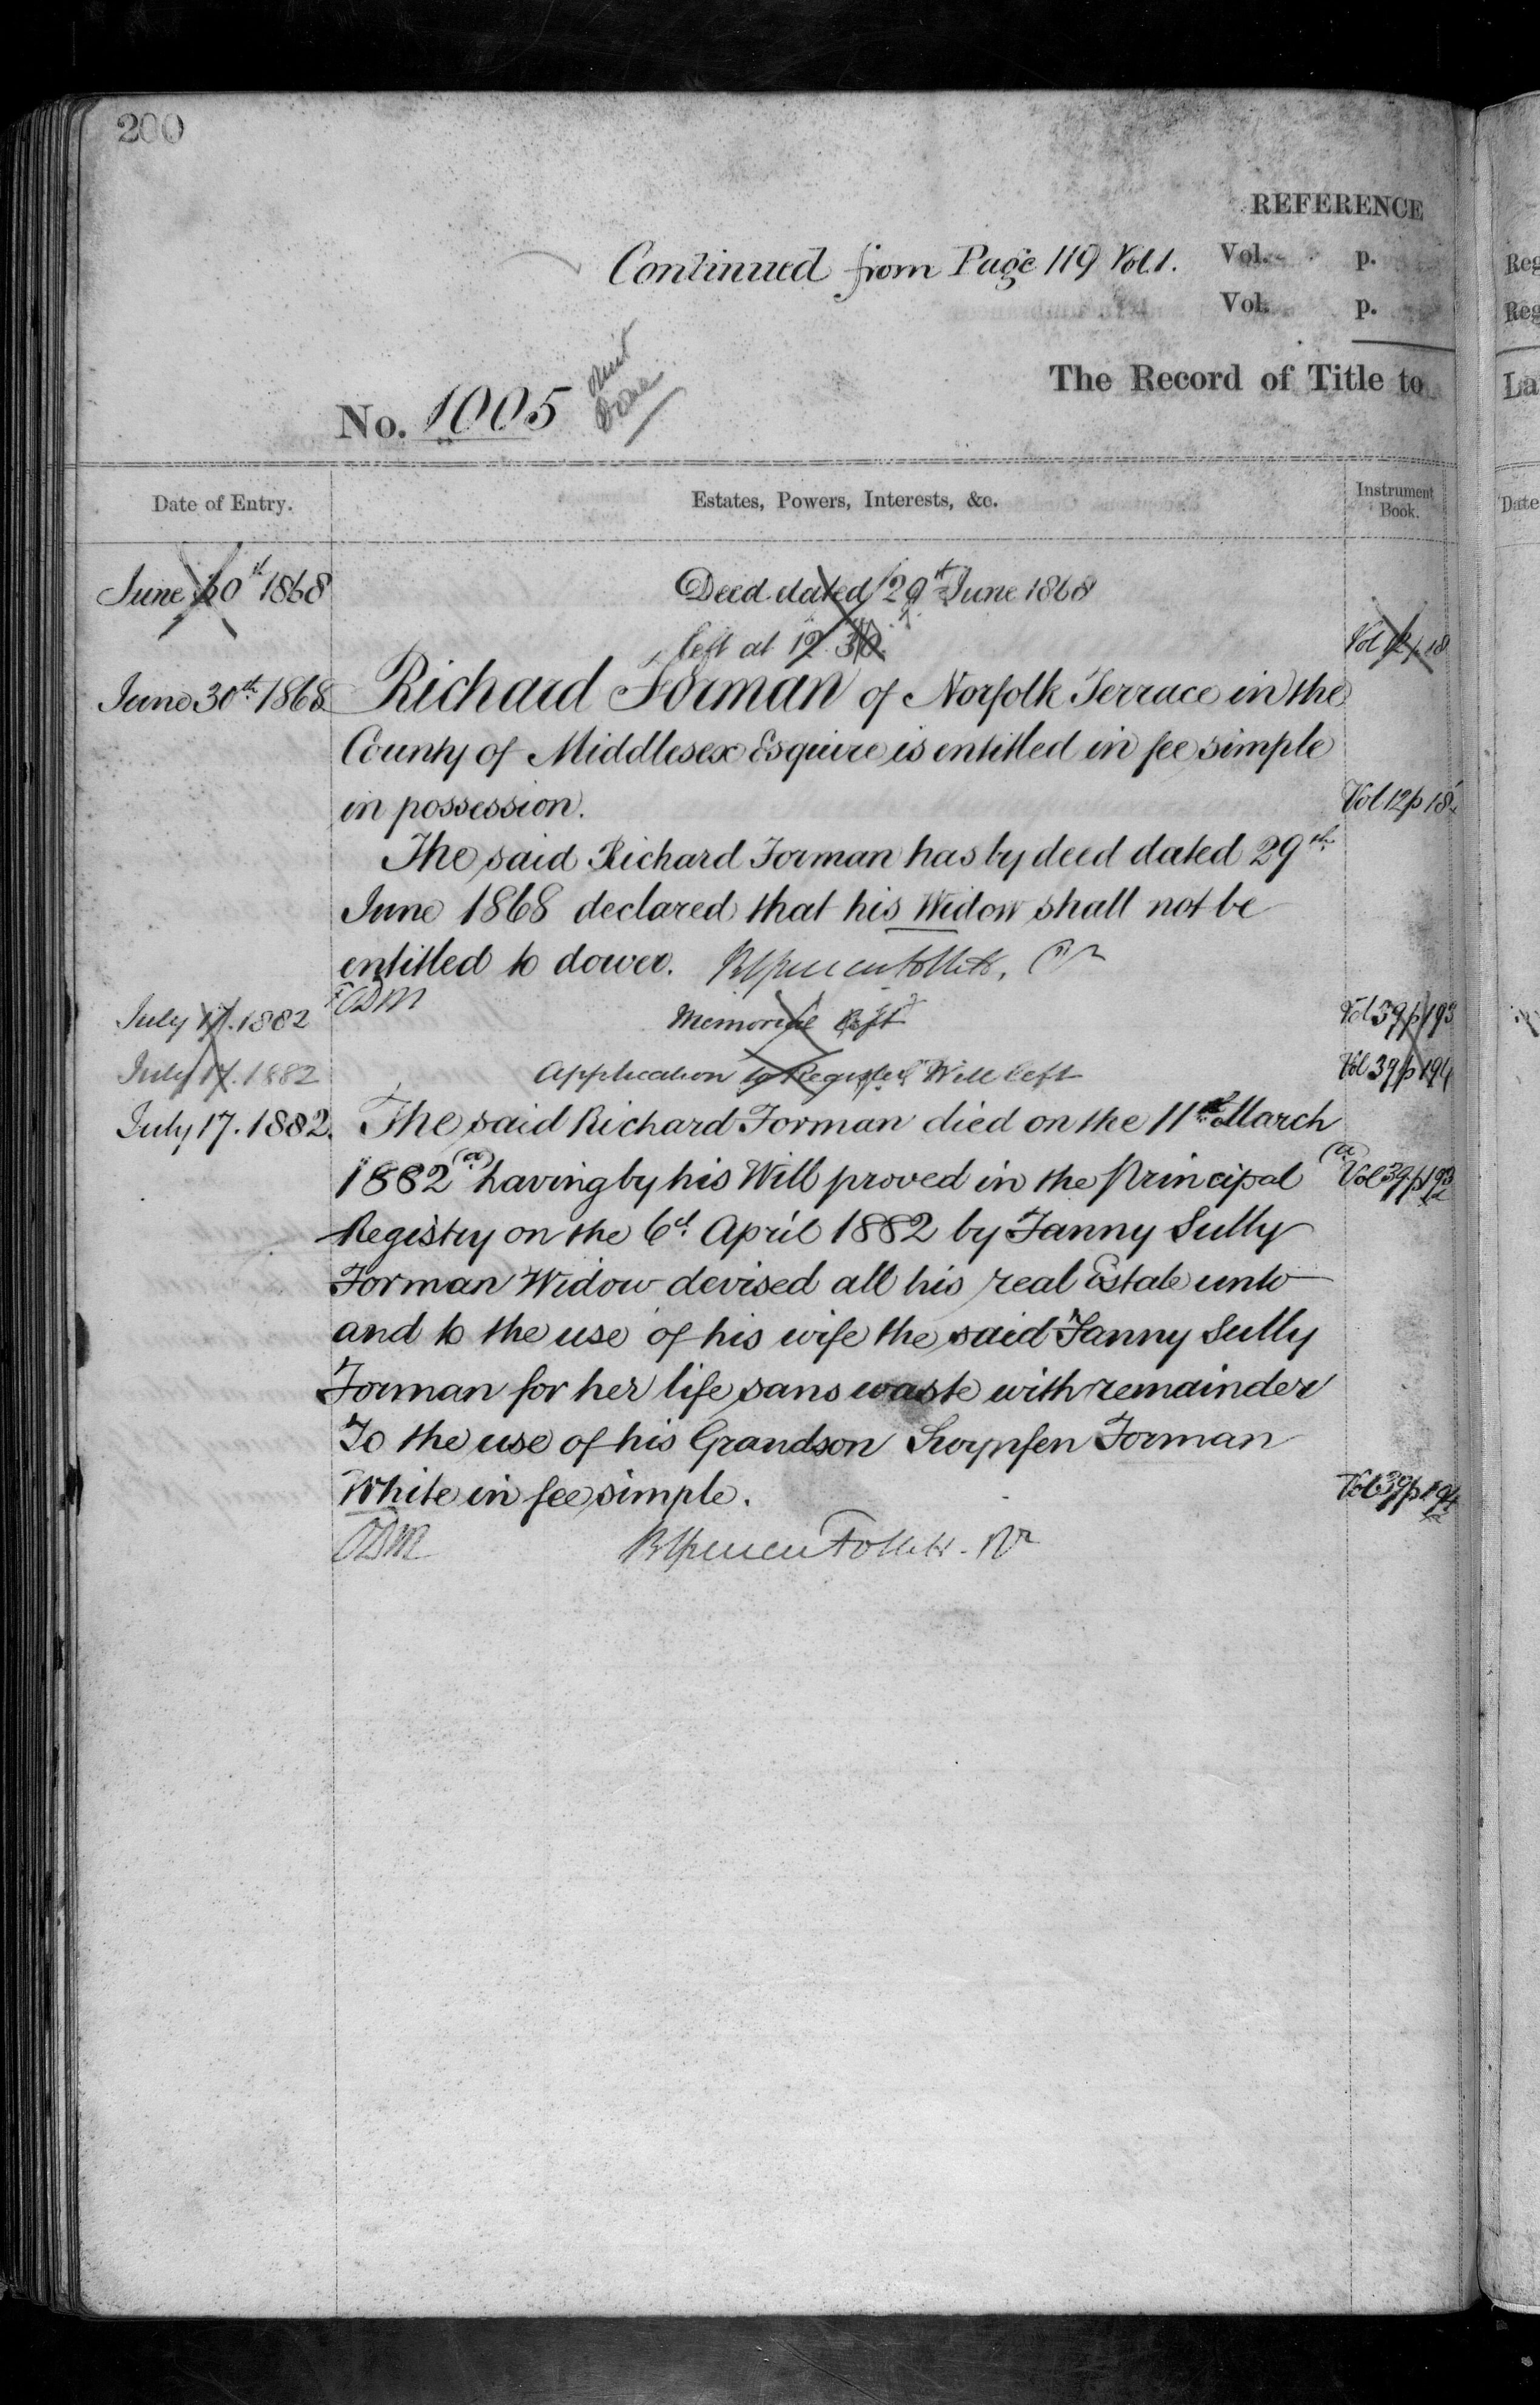 200
REFERENCE
Continued from Page 119 Vol. 1. Vol. p.
Vol. p.
The Record of Title to
No. 1005
Date of Entry. Estates, Powers, Interests, &c. Instrument Book.
June 30th 1868 Deed dated 29th June 1868
left at 12.30. Vol 12 p 18
June 30th 1868 Richard Forman of Norfolk Terrace in the
County of Middlesex Esquire is entitled in fee simple
in possession. Vol 12 p 18
The said Richard Forman has by deed dated 29th
June 1868 declared that his Widow shall not be
entitled to dower.
July 17. 1882 Memorial left Vol 39 p 193
July 17. 1882 Application to Register Will left Vol 39 p 194
July 17. 1882. The said Richard Forman died on the 11th March
1882 (a) having by his Will proved in the Principal (a) Vol 39 p 193
Registry on the 6th April 1882 by Fanny Sully
Forman Widow devised all his real Estate unto
and to the use of his wife the said Fanny Sully
Forman for her life sans waste with remainder
To the use of his Grandson Forman
White in fee simple. Vol 39 p 194
Reg
Reg
La
Date